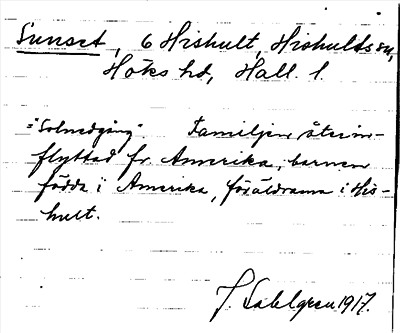 Sunset, 6 Hishult, Hishults sn,
Höks hd, Hall. l.
="Solnedgång". Familjen återin-
flyttad fr. Amerika, barnen
födda i Amerika, föräldrarna i His-
hult.
J. Sahlgren 1917.